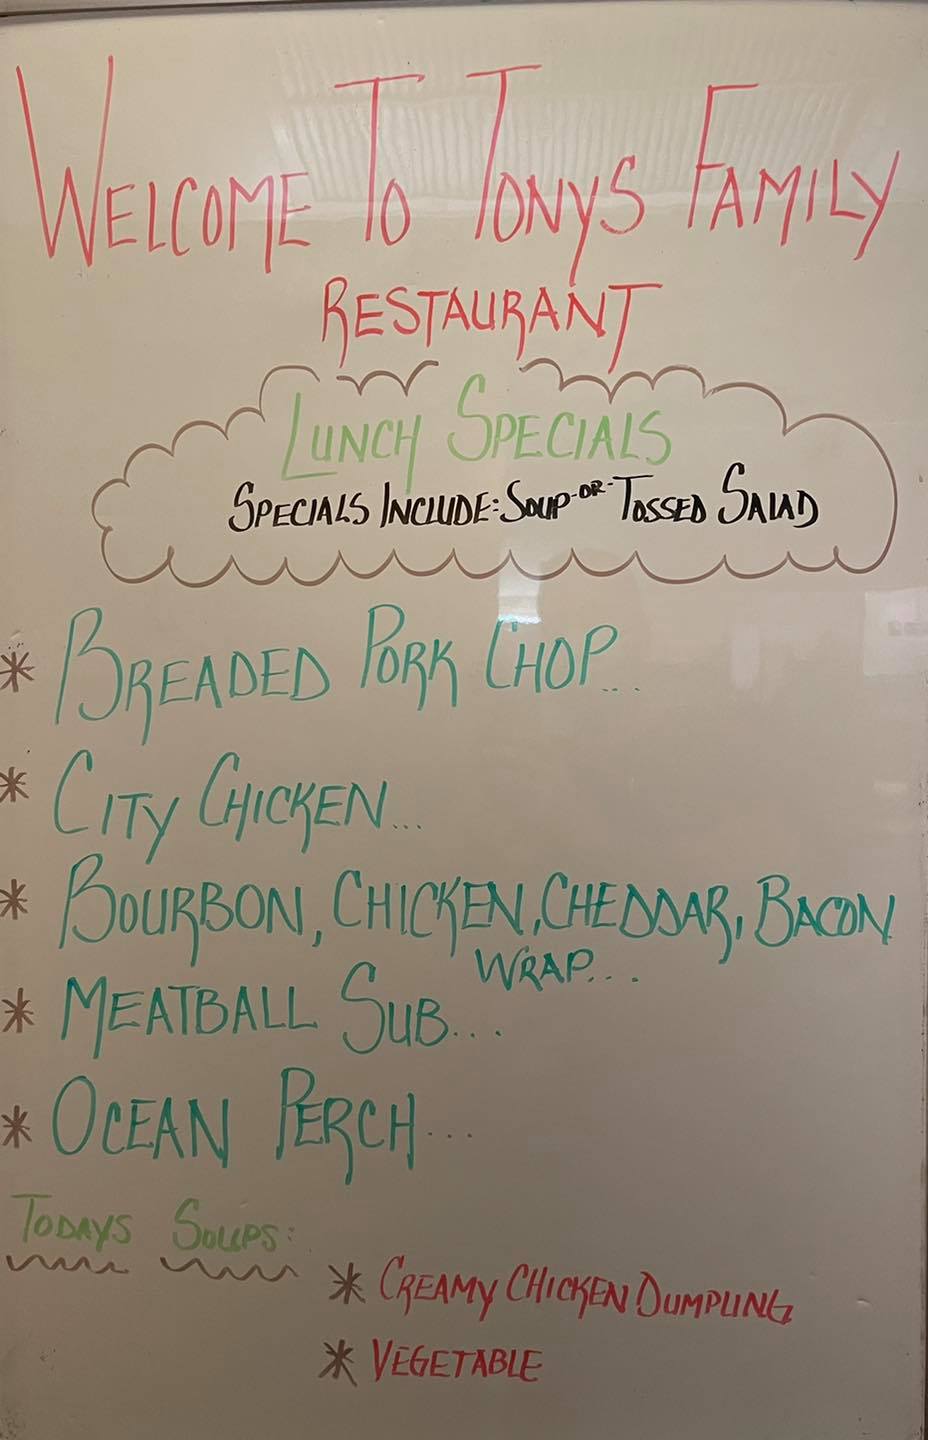 WELCOME TO TONYS FAMILY
RESTAURANT
LUNCH SPECIALS
SPECIALS INCLUDE: SOUP -OR- TOSSED SALAD
* BREADED PORK CHOP...
* CITY CHICKEN...
* BOURBON, CHICKEN, CHEDDAR, BACON
WRAP...
* MEATBALL SUB...
* OCEAN PERCH...
TODAYS SOUPS:
* CREAMY CHICKEN DUMPLING
* VEGETABLE